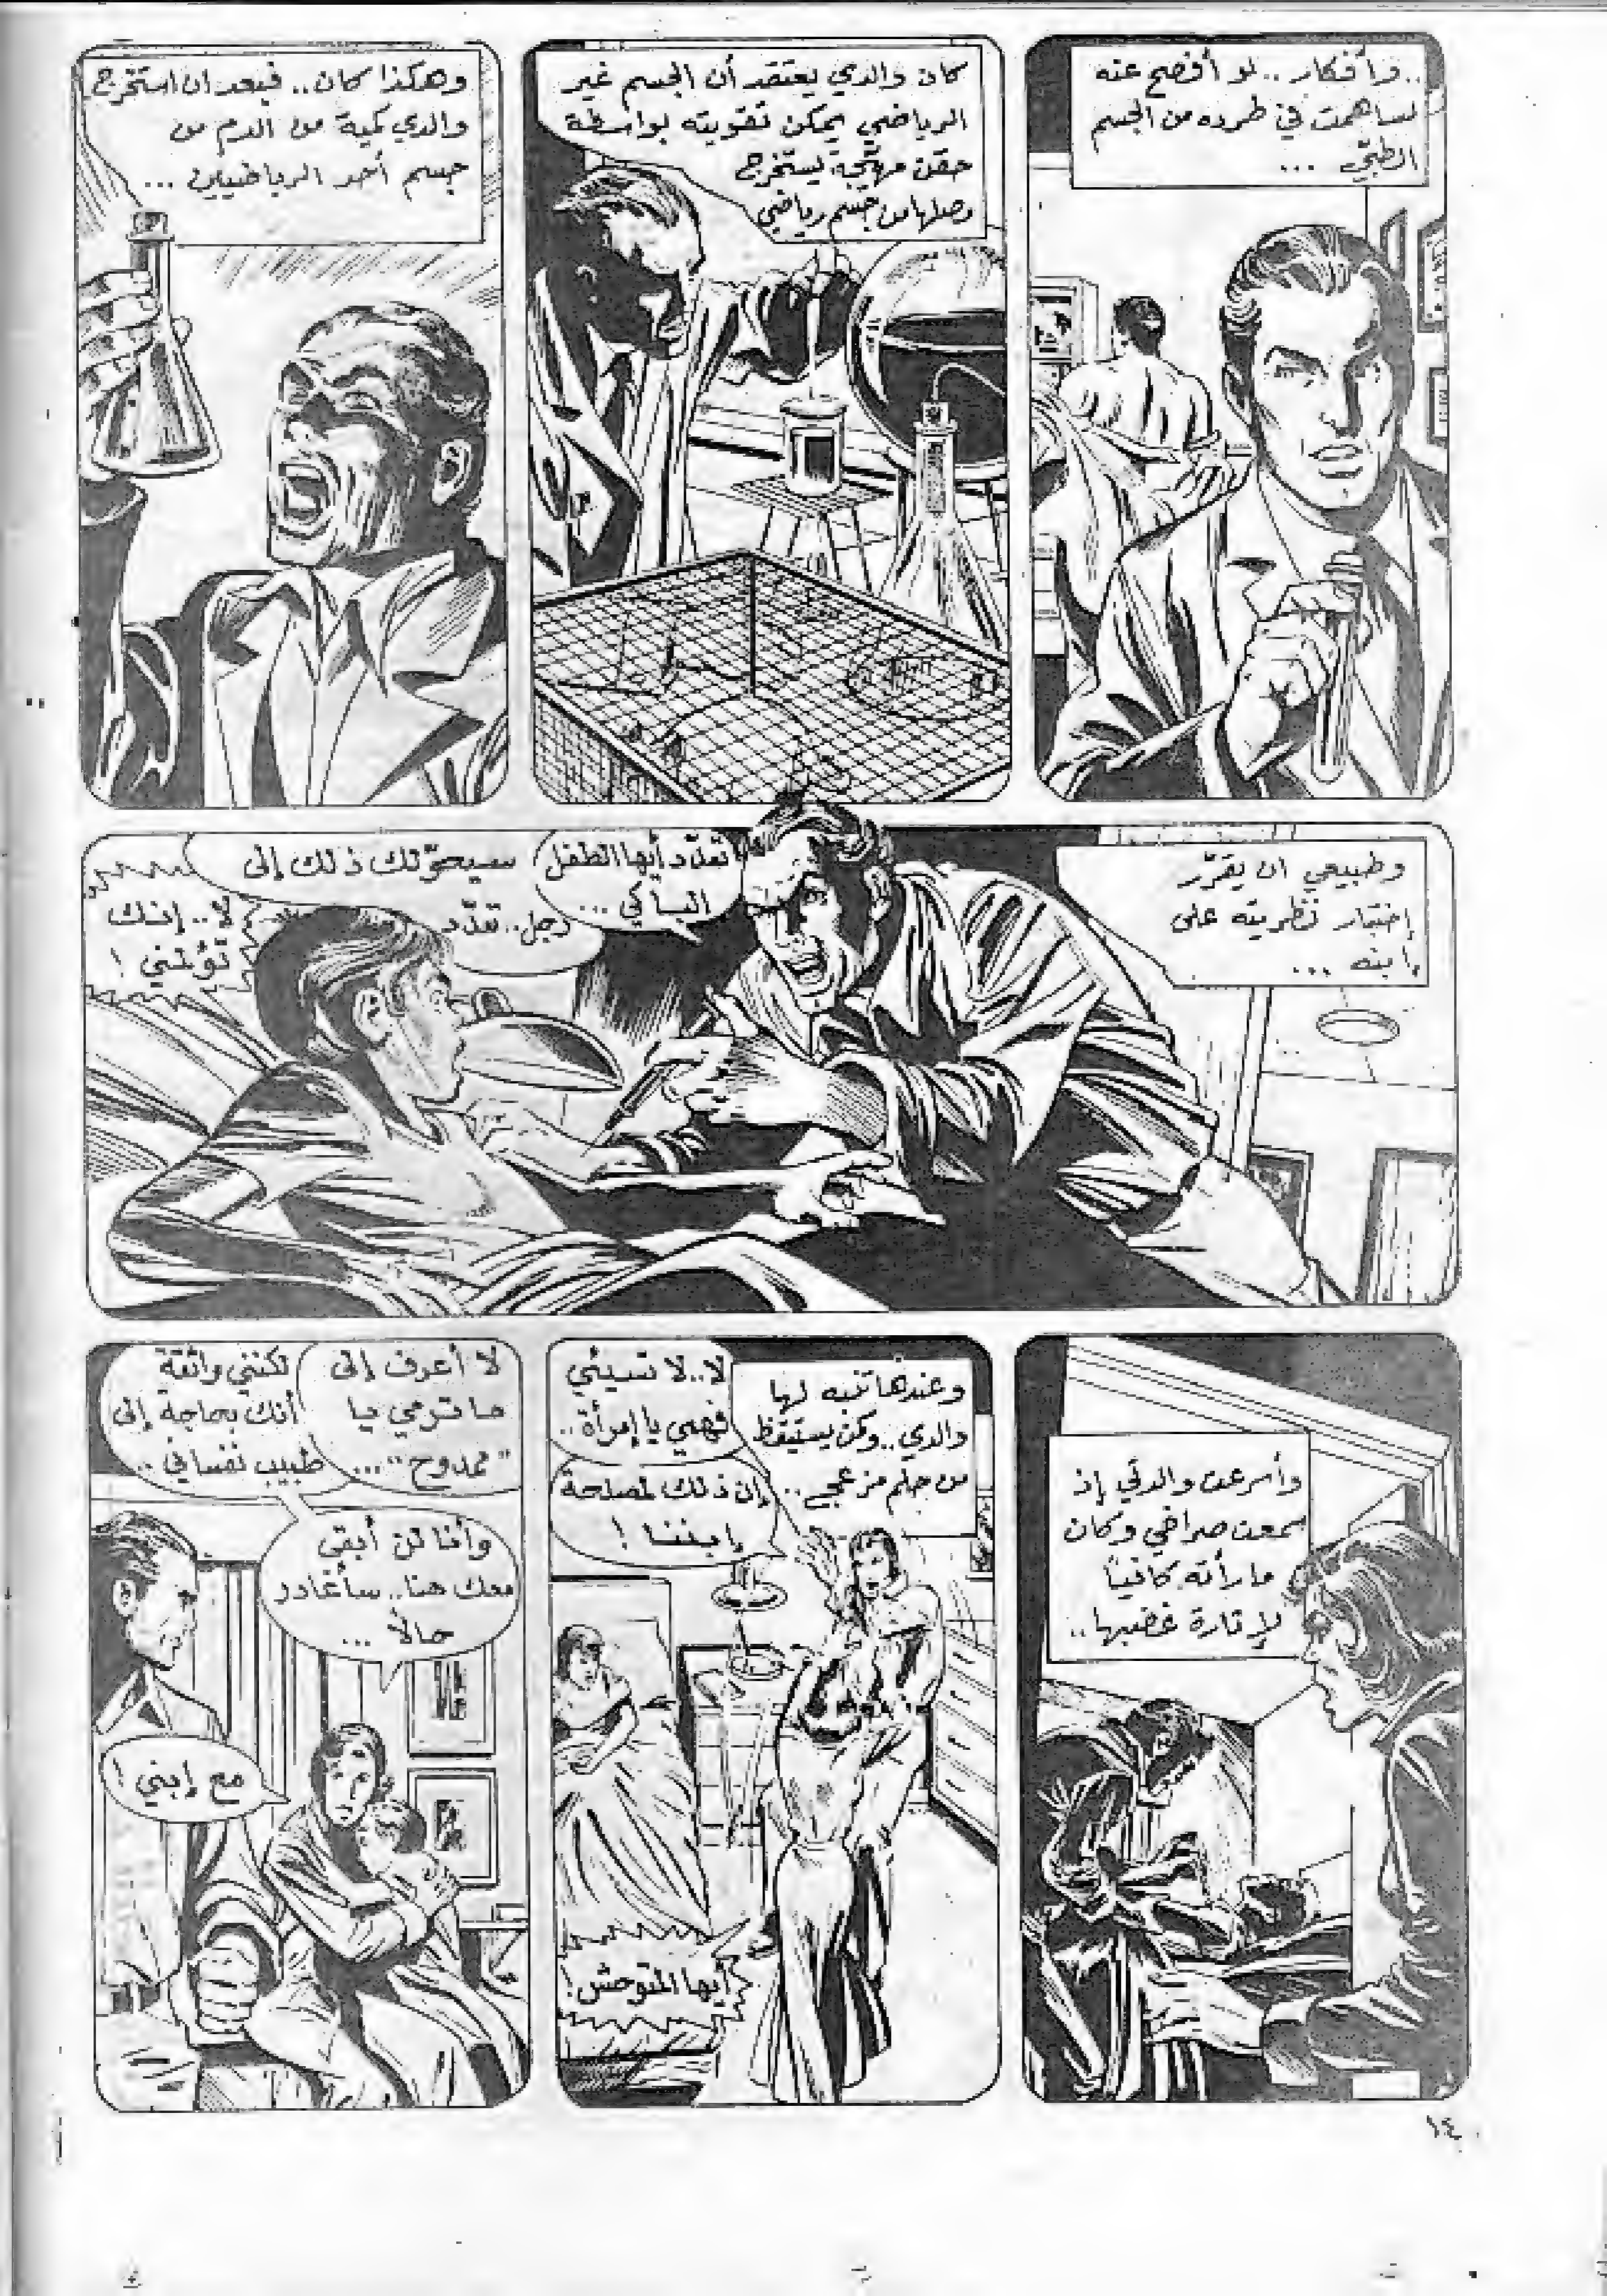 ..وأفكار.. لو أفصح عنه
لساهمت في طرده من الجسم
الطبّي ...
كان والدي يعتقد أن الجسم غير
الرياضي يمكن تقويته بواسطة
حقن مهيّجة يستخرج
مصلها من جسم رياضي
وهكذا كان.. فبعد ان استخرج
والدي كمية من الدم من
جسم أحد الرياضيين ...
وطبيعي ان يقرّر
إختبار نظريته على
إبنه ...
تمدّد أيها الطفل
الباكي ...
سيحوّلك ذلك إلى
رجل.. تمدّد
لا.. إنك
تؤلمني !
وأسرعت والدتي إذ
سمعت صراخي وكان
ما رأته كافياً
لإثارة غضبها..
وعندها تنبه لها
والدي.. وكمن يستيقظ
من حلم مزعج..
لا.. لا تسيئي
فهمي يا إمرأة..
إن ذلك لمصلحة
إبننا !
أيها المتوحش !
لا أعرف إلى
ما ترمي يا
"ممدوح"...
لكنني واثقة
أنك بحاجة إلى
طبيب نفساني ..
وأنا لن أبقى
معك هنا.. سأغادر
حالاً ...
مع إبني !
١٤